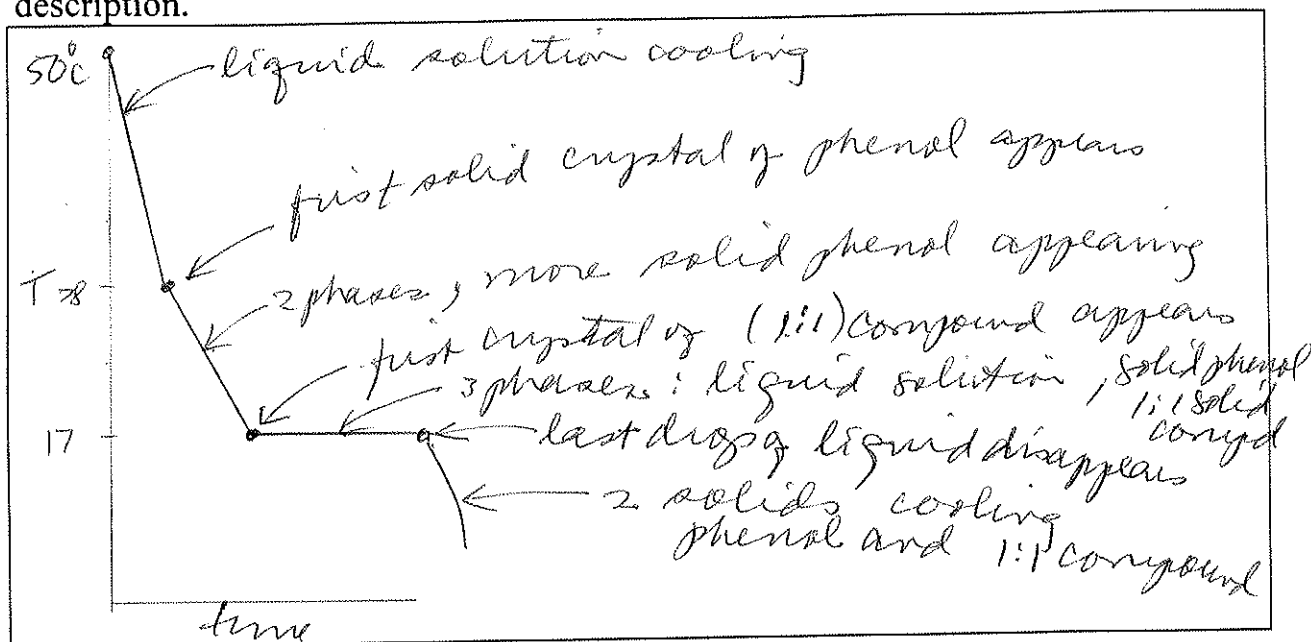 description.
50°C
liquid solution cooling
first solid crystal of phenol appears
T 28
2 phases, more solid phenol appearing
first crystal of (1:1) compound appears
3 phases: liquid solution, solid phenol
1:1 solid
compd
17
last drop of liquid disappears
2 solids cooling
phenol and 1:1 compound
time